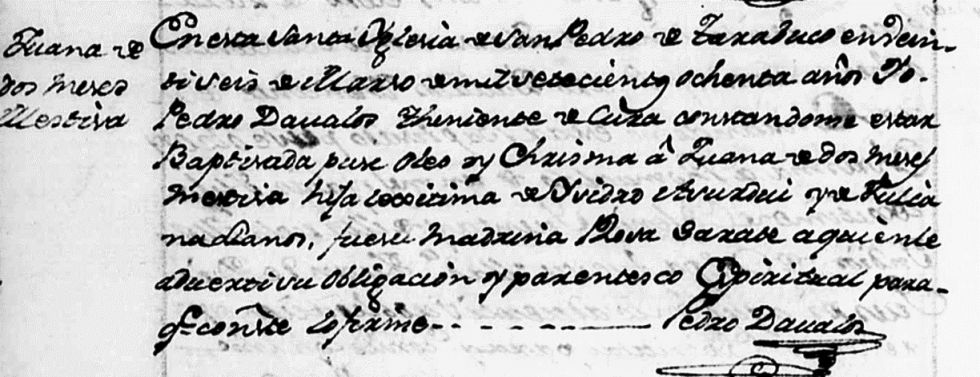 Juana de
dos meses
Mestisa
En esta Santa Yglesia de San Pedro de Tarabuco en vein-
ti seis de Marzo de mil setecientos ochenta años Yo
Pedro Davalos Theniente de Cura constandome estar
Baptisada puse oleo y Chrisma â Juana de dos meses
mestisa hija lexitima de Ysidro y de Julia
na Llanos, fue su Madrina Rosa Sarate a quien le
adverti su obligación y parentesco Espiritual para
q.e conste lo firme Pedro Davalos